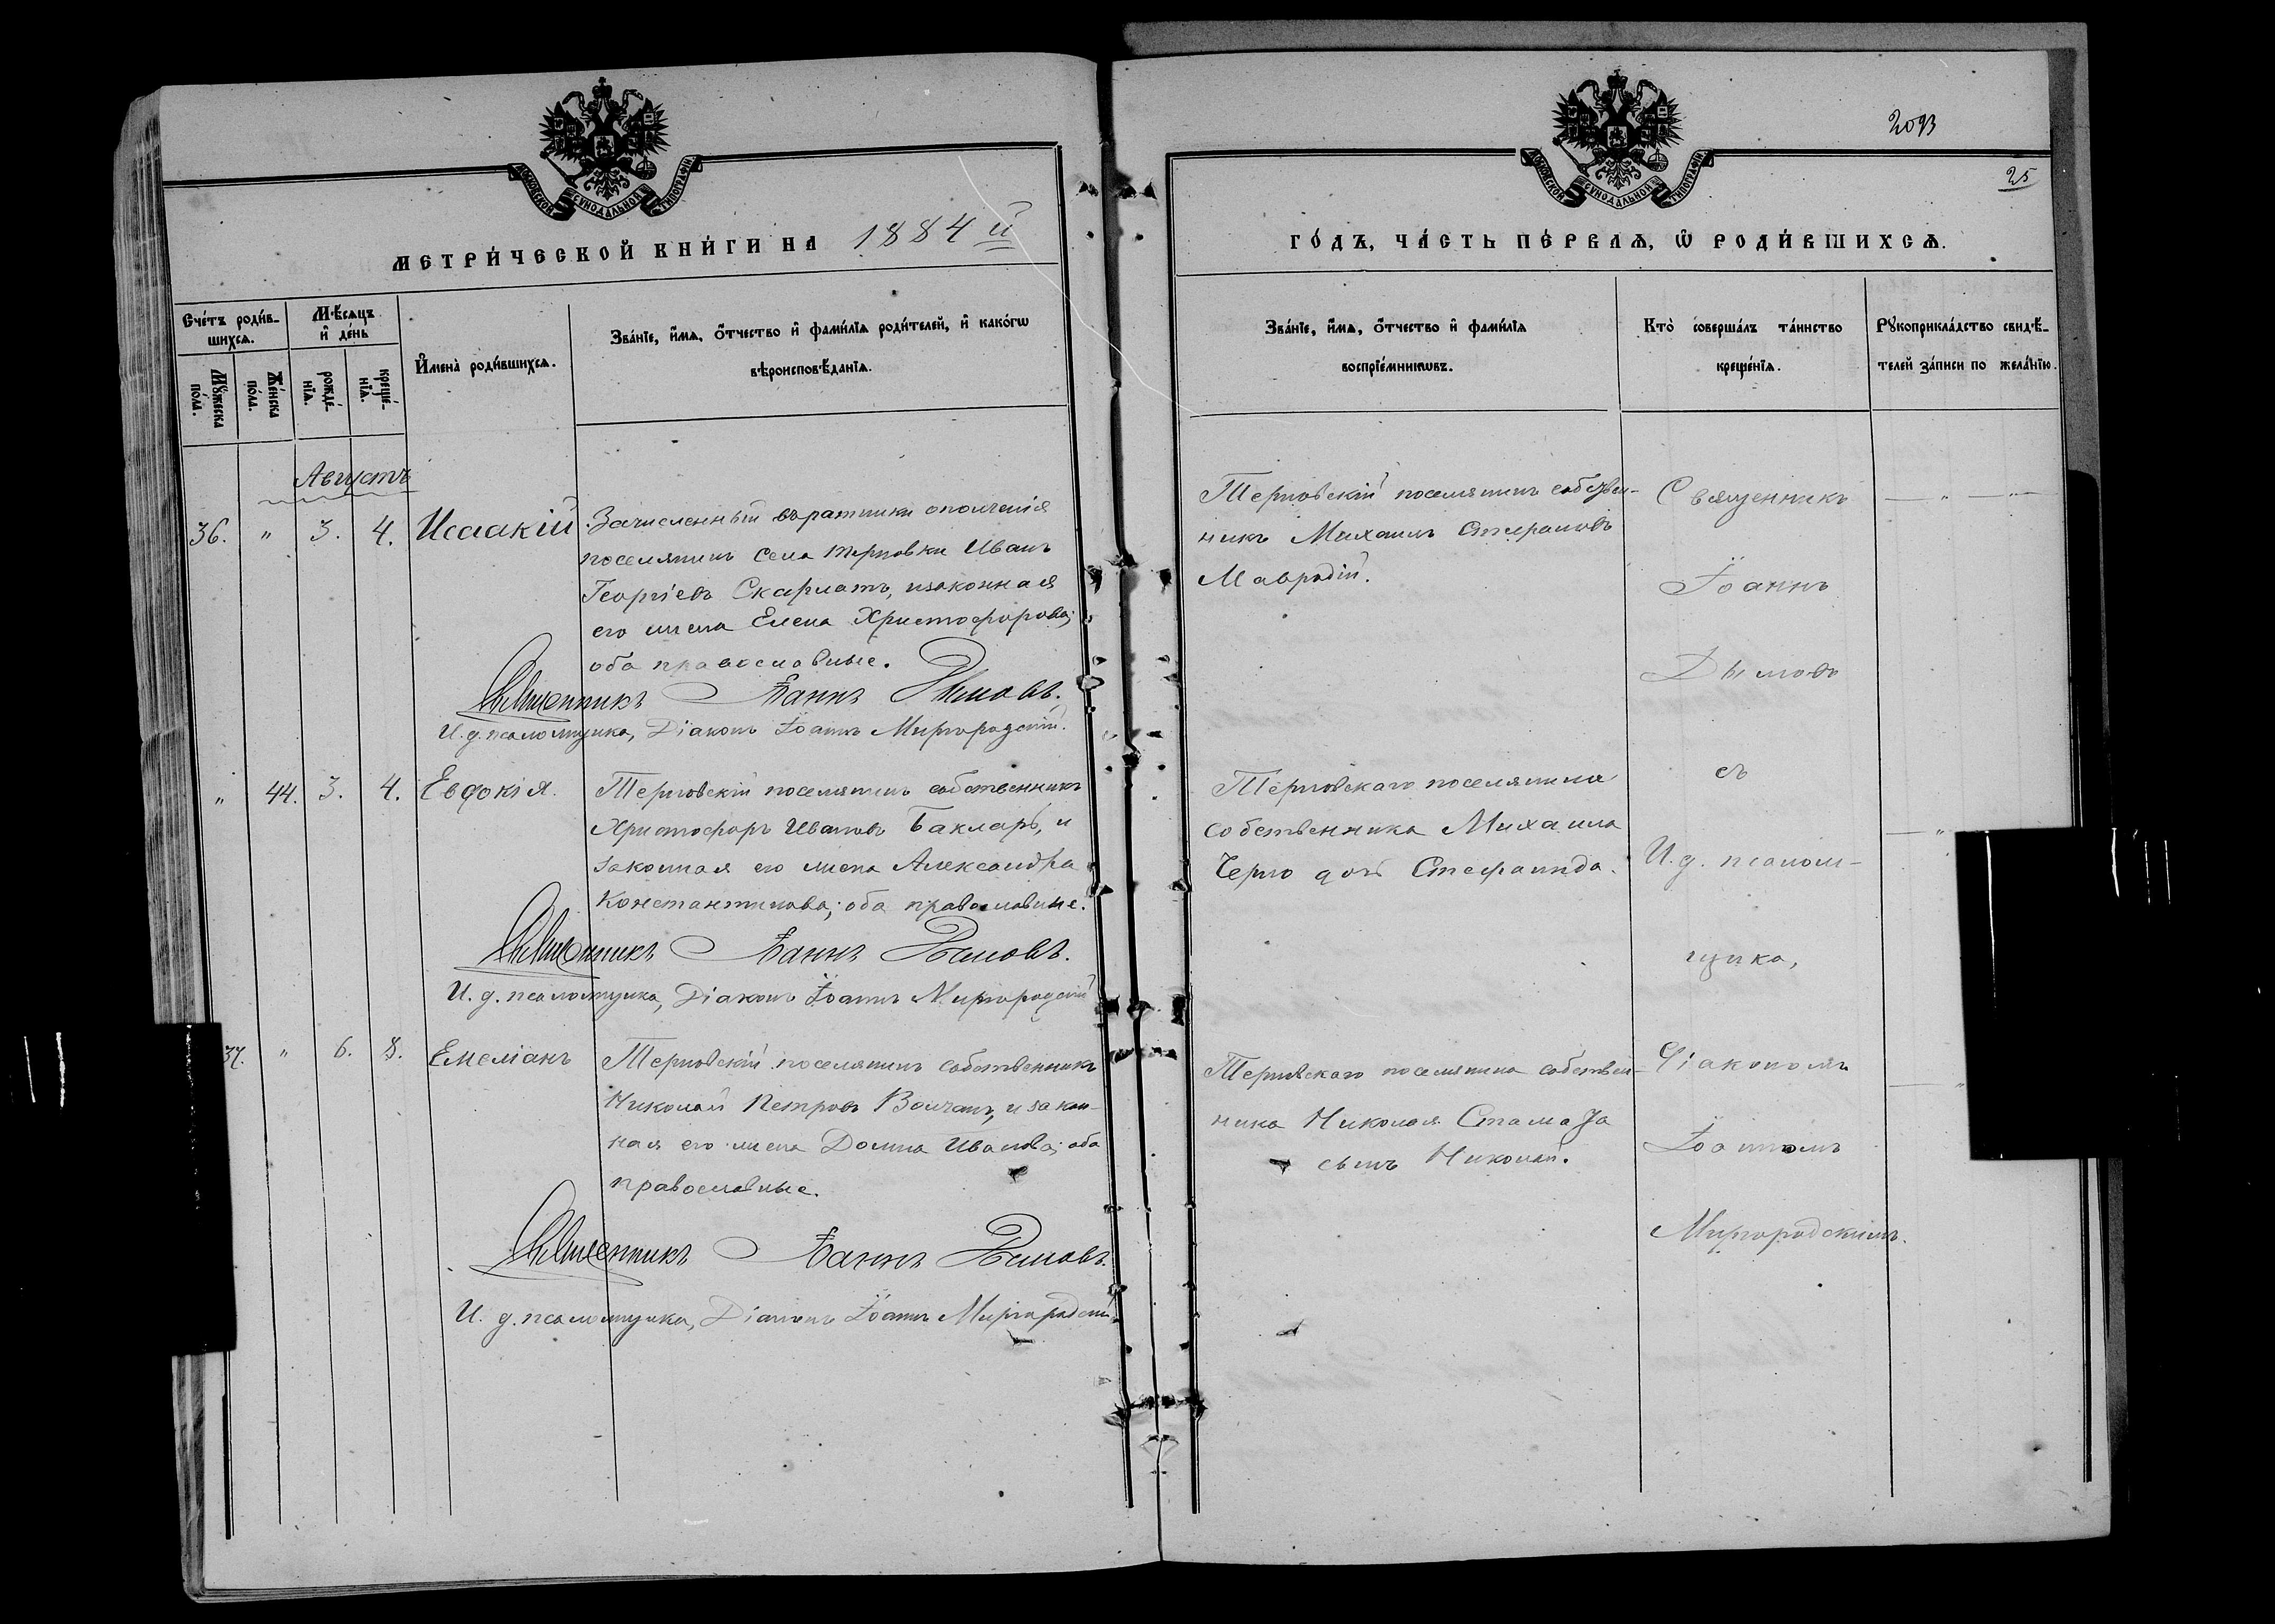 МОСКОВСКОЙ СѴНОДАЛЬНОЙ ТИПОГРАФІИ
МЕТРИ́ЧЕСКОЙ КНИ́ГИ НА 1884 й
Сче́тъ роди́в-
шихсѧ.
Мꙋ́жеска по́ла.
Же́нска по́ла.
Мѣ́сяцъ
и҆ де́нь
рожде́-
нїѧ.
креще́-
нїѧ.
И҆мена̀ роди́вшихсѧ.
Зва́нїе, и҆́мѧ, ѻ҆́тчество и҆ фами́лїѧ роди́телей, и҆ како́гѡ
вѣроисповѣ́данїѧ.
Августъ
36. " 3. 4. Исаакій
Зачисленный въ ратники ополченія
поселянинъ села Терновки Иванъ
Георгіевъ Скарлатъ, и законная
его жена Елена Христофорова;
оба православные.
Священникъ Іоаннъ Дымовъ.
И. д. псаломщика, Діаконъ Іоаннъ Миргородскій.
" 44. 3. 4. Евдокія.
Терновскій поселянинъ собственникъ
Христофоръ Ивановъ Бакларъ, и
законная его жена Александра
Константинова; оба православные.
Священникъ Іоаннъ Дымовъ.
И. д. псаломщика, Діаконъ Іоаннъ Миргородскій
37. " 6. 8. Емеліанъ
Терновскій поселянинъ собственникъ
Николай Петровъ Волчанъ, и закон-
ная его жена Домна Иванова; оба
православные.
Священникъ Іоаннъ Дымовъ.
И. д. псаломщика, Діаконъ Іоаннъ Миргородскій
2093
25
МОСКОВСКОЙ СѴНОДАЛЬНОЙ ТИПОГРАФІИ
ГО́ДЪ, ЧА́СТЬ ПЕ́РВАѦ, Ѡ҆ РОДИ́ВШИХСѦ.
Зва́нїе, и҆́мѧ, ѻ҆́тчество и҆ фами́лїѧ
воспрїе́мникѡвъ.
Кто̀ соверша́лъ та́инство
креще́нїѧ.
Рꙋкоприкла́дство свидѣ́-
телей за́писи по жела́нїю.
Терновскій поселянинъ собствен-
никъ Михаилъ Стефановъ
Мавродій.
Терновскаго поселянина
собственника Михаила
Черно дочь Стефанида.
Терновскаго поселянина собствен-
ника Николая Стамата
сынъ Николай.
Священникъ
Іоаннъ
Дымовъ
съ
И. д. псалом-
щика,
Діакономъ
Іоанномъ
Миргородскимъ.